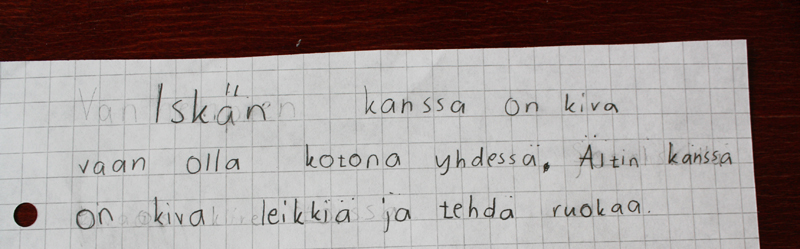 Iskän kanssa on kiva
vaan olla kotona yhdessä. Äitin kanssa
on kiva leikkiä ja tehdä ruokaa.